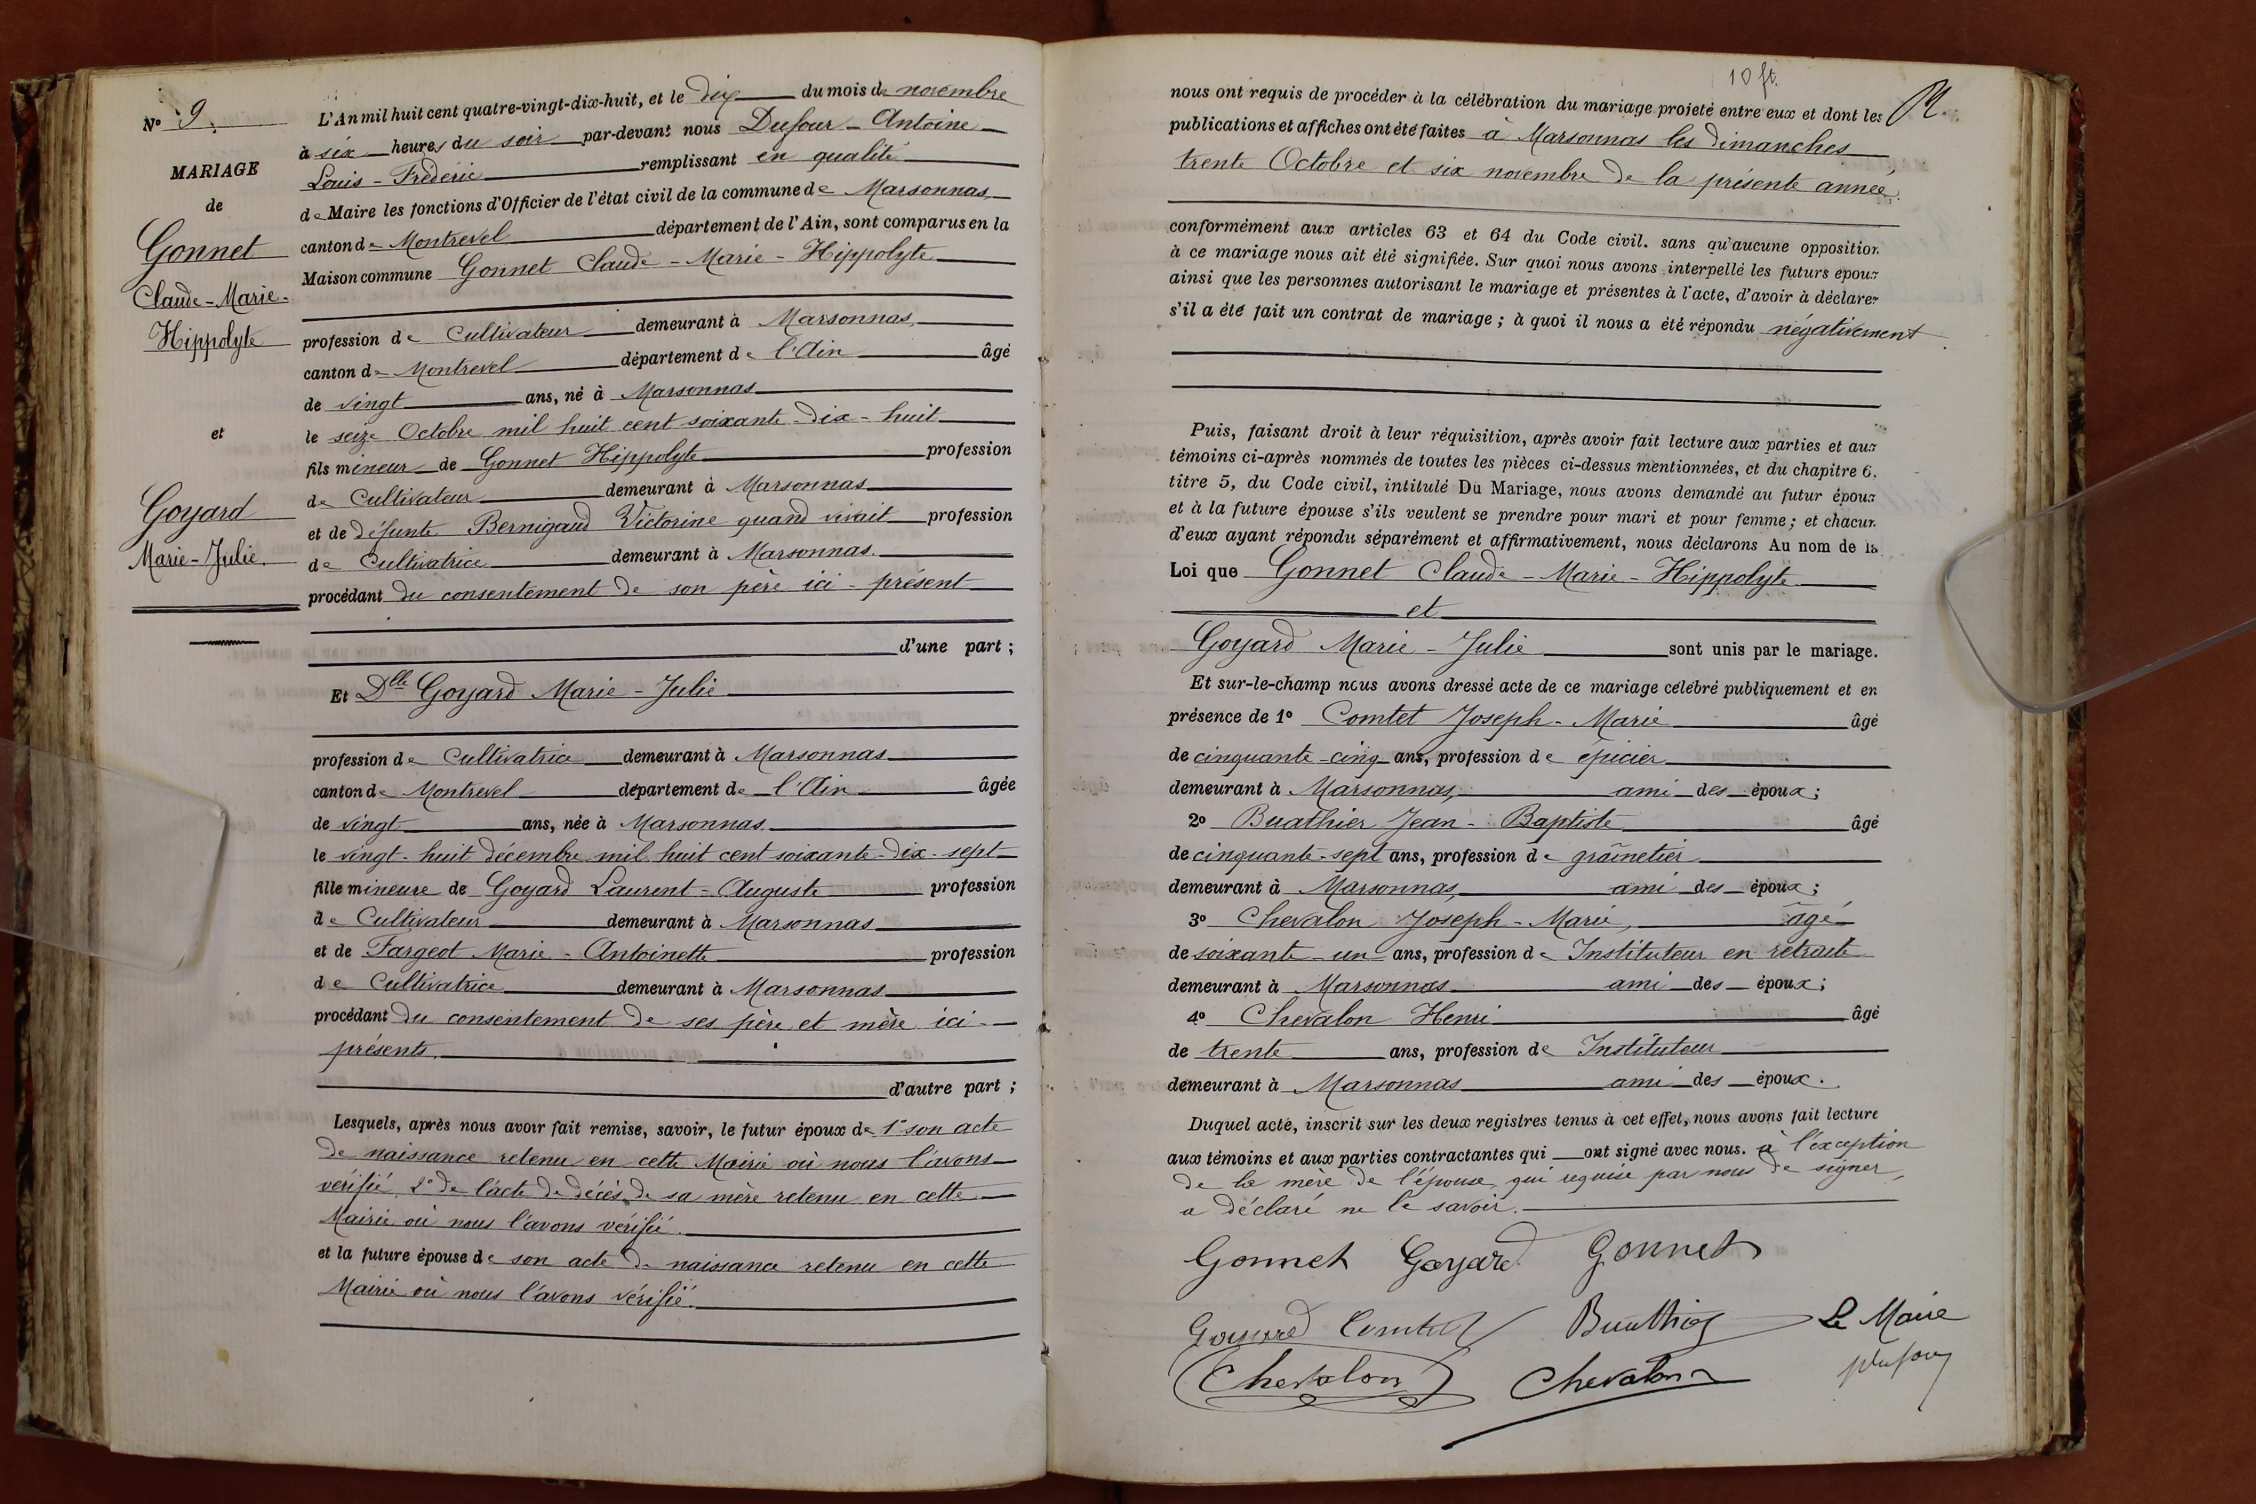 N° 9.
MARIAGE
de
Gonnet
Claude-Marie-
Hippolyte
et
Goyard
Marie-Julie.
L'An mil huit cent quatre-vingt-dix-huit, et le dix du mois de novembre
à six heures du soir par-devant nous Dufour - Antoine
Louis - Frédéric remplissant en qualité
de Maire les fonctions d'Officier de l'état civil de la commune de Marsonnas,
canton de Montrevel département de l'Ain, sont comparus en la
Maison commune Gonnet Claude - Marie - Hippolyte
profession de Cultivateur demeurant à Marsonnas,
canton de Montrevel département de l'Ain âgé
de vingt ans, né à Marsonnas
le seize Octobre mil huit cent soixante-dix-huit
fils mineur de Gonnet Hippolyte profession
de Cultivateur demeurant à Marsonnas
et de défunte Bernigaud Victorine quand vivait profession
de Cultivatrice demeurant à Marsonnas.
procédant du consentement de son père ici-présent
d'une part ;
Et Dlle Goyard Marie-Julie
profession de Cultivatrice demeurant à Marsonnas
canton de Montrevel département de l'Ain âgée
de vingt ans, née à Marsonnas
le vingt-huit décembre mil huit cent soixante-dix-sept
fille mineure de Goyard Laurent-Auguste profession
de Cultivateur demeurant à Marsonnas
et de Fargeot Marie-Antoinette profession
de Cultivatrice demeurant à Marsonnas
procédant du consentement de ses père et mère ici-
présents.
d'autre part ;
Lesquels, après nous avoir fait remise, savoir, le futur époux de 1° son acte
de naissance retenu en cette Mairie où nous l'avons
vérifié, 2° de l'acte de décès de sa mère retenu en cette
Mairie où nous l'avons vérifié.
et la future épouse de son acte de naissance retenu en cette
Mairie où nous l'avons vérifié.
10 ft.
nous ont requis de procéder à la célébration du mariage projeté entre eux et dont les
publications et affiches ont été faites à Marsonnas les dimanches
trente Octobre et six novembre de la présente année,
conformément aux articles 63 et 64 du Code civil. sans qu'aucune opposition
à ce mariage nous ait été signifiée. Sur quoi nous avons interpellé les futurs époux
ainsi que les personnes autorisant le mariage et présentes à l'acte, d'avoir à déclarer
s'il a été fait un contrat de mariage ; à quoi il nous a été répondu négativement.
Puis, faisant droit à leur réquisition, après avoir fait lecture aux parties et aux
témoins ci-après nommés de toutes les pièces ci-dessus mentionnées, et du chapitre 6.
titre 5, du Code civil, intitulé Du Mariage, nous avons demandé au futur époux
et à la future épouse s'ils veulent se prendre pour mari et pour femme ; et chacun
d'eux ayant répondu séparément et affirmativement, nous déclarons Au nom de la
Loi que Gonnet Claude-Marie-Hippolyte
et
Goyard Marie-Julie sont unis par le mariage.
Et sur-le-champ nous avons dressé acte de ce mariage célébré publiquement et en
présence de 1° Comtet Joseph-Marie âgé
de cinquante-cinq ans, profession de épicier
demeurant à Marsonnas, ami des époux ;
2° Buathier Jean-Baptiste âgé
de cinquante-sept ans, profession de grainetier
demeurant à Marsonnas, ami des époux ;
3° Chevalon Joseph-Marie, âgé
de soixante-un ans, profession de Instituteur en retraite
demeurant à Marsonnas ami des époux ;
4° Chevalon Henri âgé
de trente ans, profession de Instituteur
demeurant à Marsonnas ami des époux.
Duquel acte, inscrit sur les deux registres tenus à cet effet, nous avons fait lecture
aux témoins et aux parties contractantes qui ont signé avec nous. à l'exception
de la mère de l'épouse qui requise par nous de signer,
a déclaré ne le savoir.
Gonnet Goyard Gonnet
Goyard Comtet Buathier Le Maire
Chevalon Chevalon Dufour